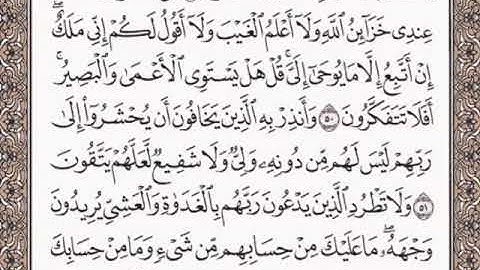 عِندِى خَزَآئِنُ ٱللَّهِ وَلَآ أَعْلَمُ ٱلْغَيْبَ وَلَآ أَقُولُ لَكُمْ إِنِّى مَلَكٌۖ
إِنْ أَتَّبِعُ إِلَّا مَا يُوحَىٰٓ إِلَىَّۚ قُلْ هَلْ يَسْتَوِى ٱلْأَعْمَىٰ وَٱلْبَصِيرُۚ
أَفَلَا تَتَفَكَّرُونَ ٥٠ وَأَنذِرْ بِهِ ٱلَّذِينَ يَخَافُونَ أَن يُحْشَرُوٓا۟ إِلَىٰ
رَبِّهِمْ لَيْسَ لَهُم مِّن دُونِهِۦ وَلِىٌّ وَلَا شَفِيعٌ لَّعَلَّهُمْ يَتَّقُونَ
٥١ وَلَا تَطْرُدِ ٱلَّذِينَ يَدْعُونَ رَبَّهُم بِٱلْغَدَوٰةِ وَٱلْعَشِىِّ يُرِيدُونَ
وَجْهَهُۥۖ مَا عَلَيْكَ مِنْ حِسَابِهِم مِّن شَىْءٍ وَمَا مِنْ حِسَابِكَ